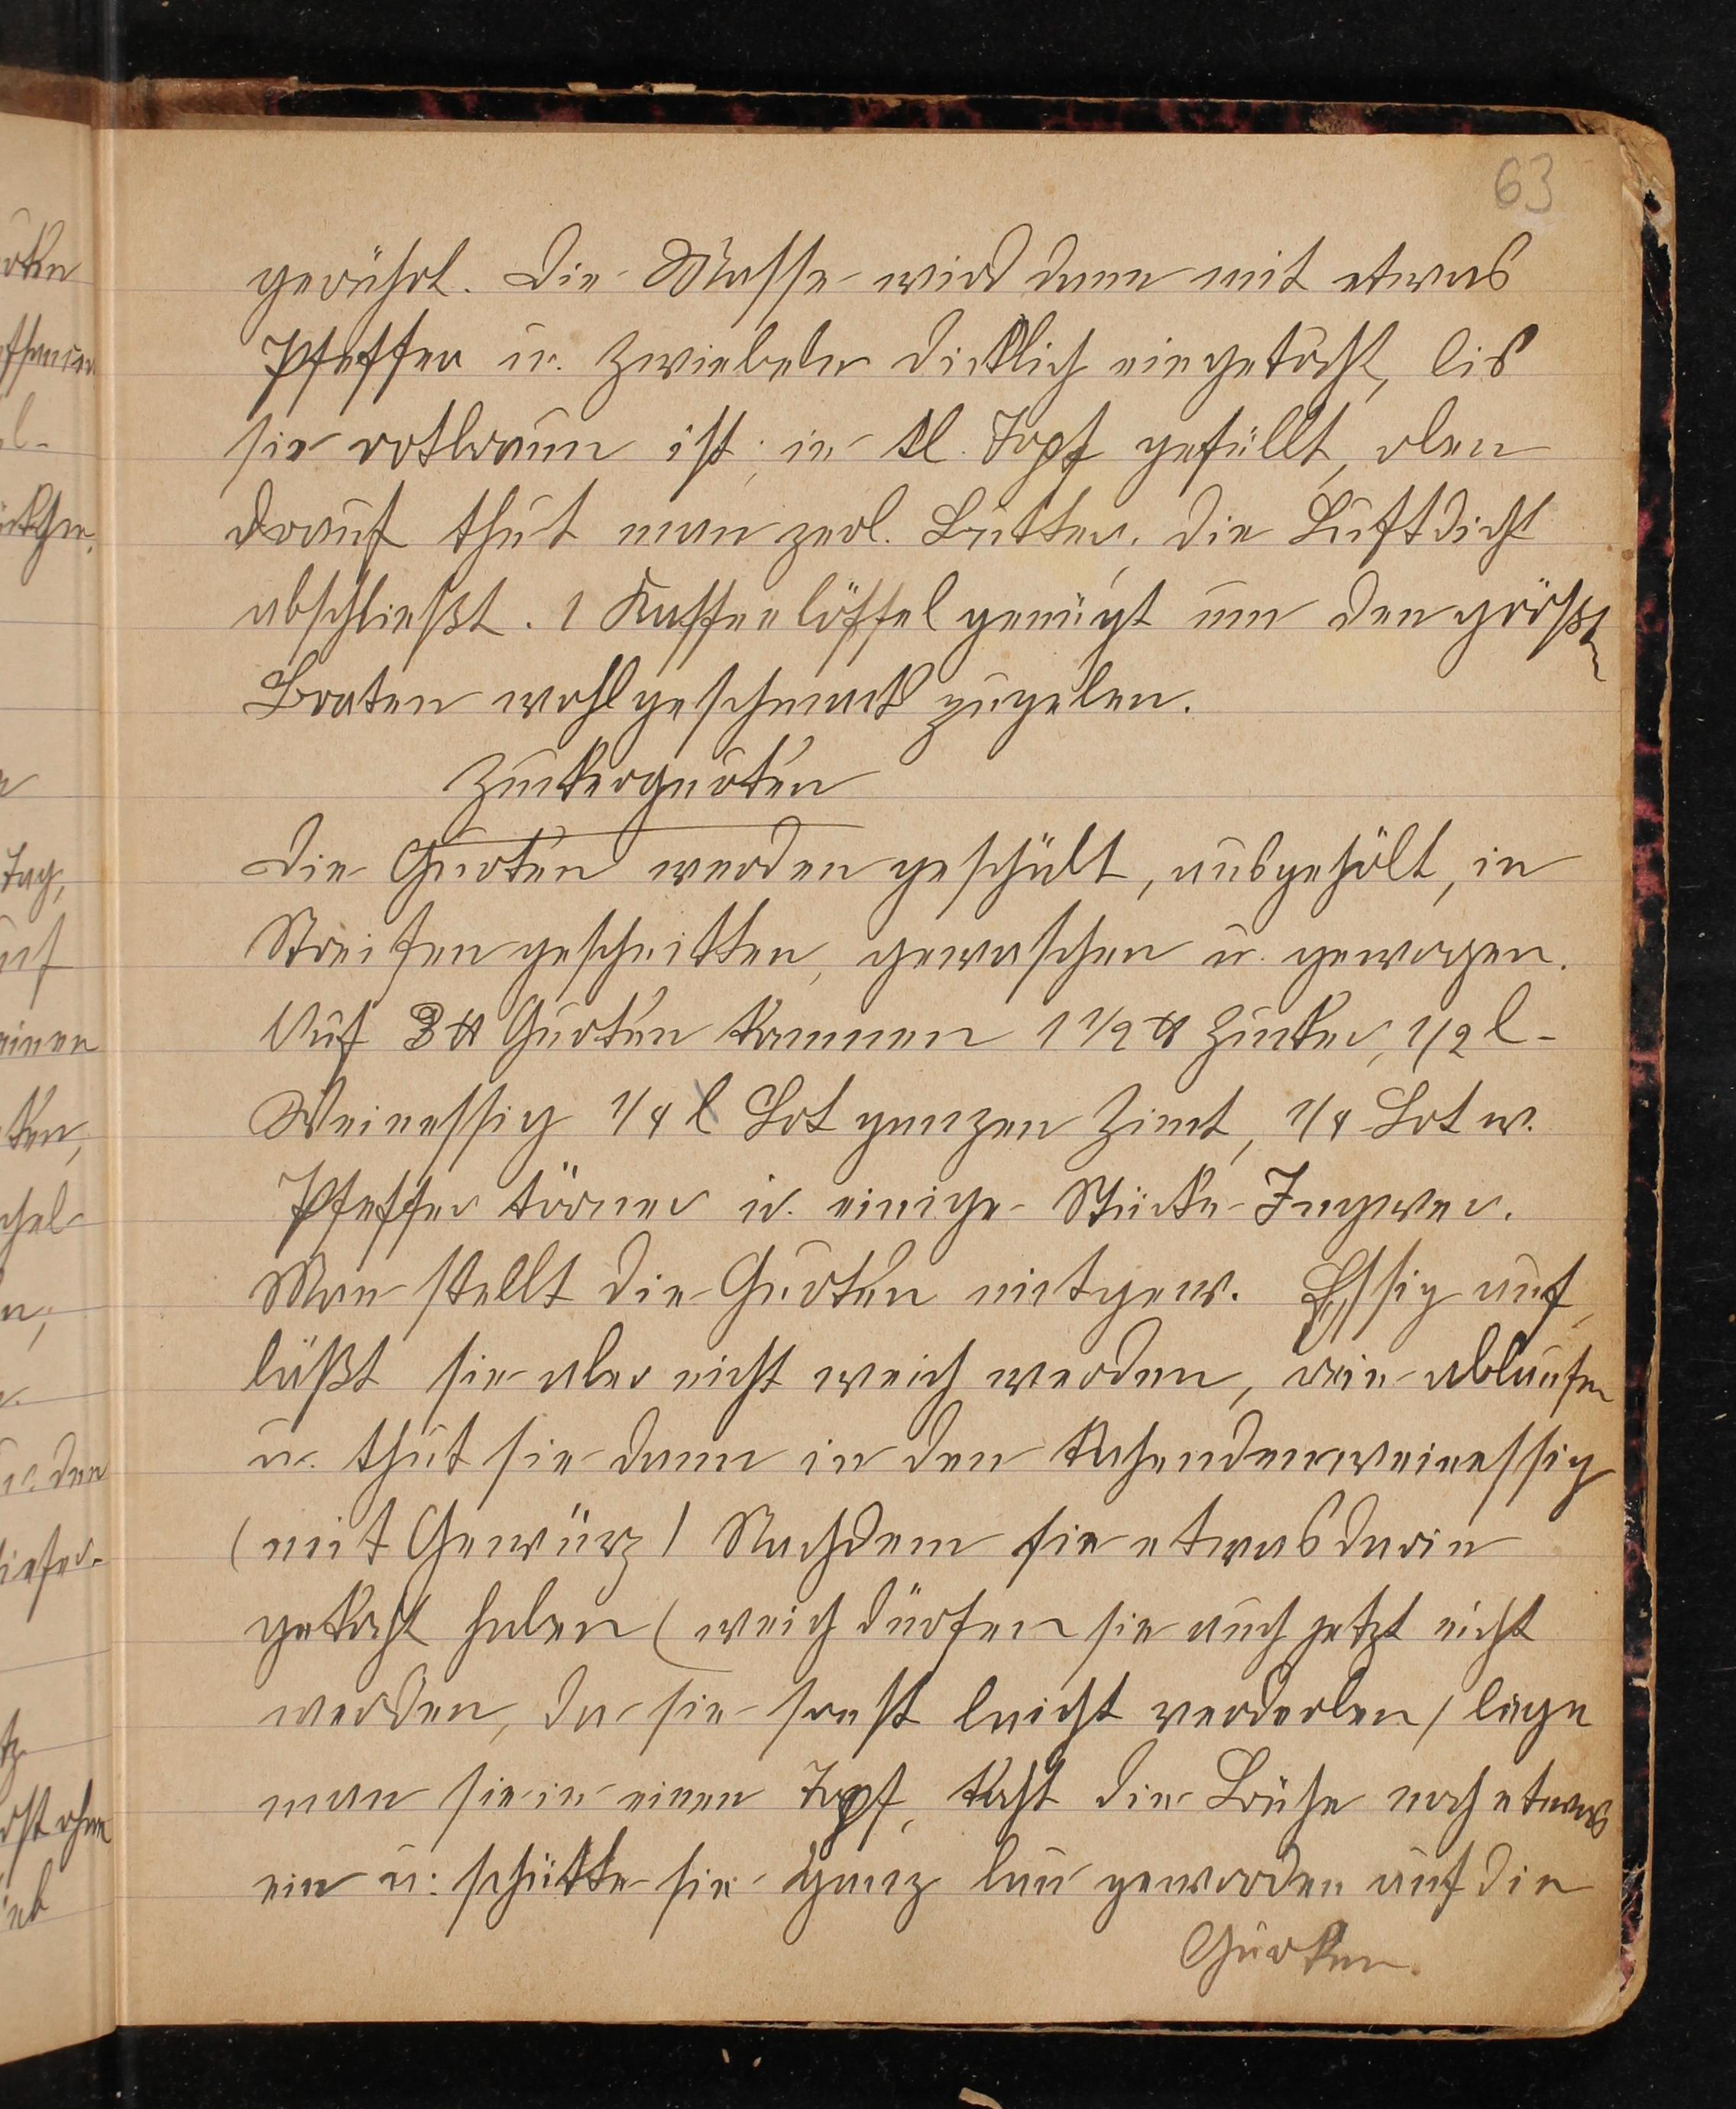 63
gerührt. Die Masse wird dann mit etwas
Pfeffer u. Zwiebeln dicklich eingekocht, bis
sie rotbraun ist, in kl. Topf gefüllt, oben
drauf thut man zerl. Butter, die Luftdicht
abschließt. 1 Kaffeelöffel genügt um den größten
Braten wohlgeschmack zugeben.
Zuckergurken
Die Gurken werden geschält, ausgehölt, in
Streifen geschnitten, gewaschen u. gewogen.
Auf 3 ℔ Gurken kommen 1 1/2 ℔ Zucker, 1/2 l
Weinessig 1/4 Lot ganzen Zimt, 1/4 Lot w.
Pfeffer körner u. einige Stücke Ingwer.
Man stellt die Gurken mit gew. Essig auf,
läßt sie aber nicht weich werden, ablaufen
u. thut sie dann in den kochenden weinessig
(mit Gewürz) Nachdem sie etwas darin
gekocht haben (weich dürfen sie auch jetzt nicht
werden, da sie sonst leicht verderben) lege
man sie in einen Topf, kocht die Brühe noch etwas
ein u. schütte sie ganz lau geworden auf die
Gurken.